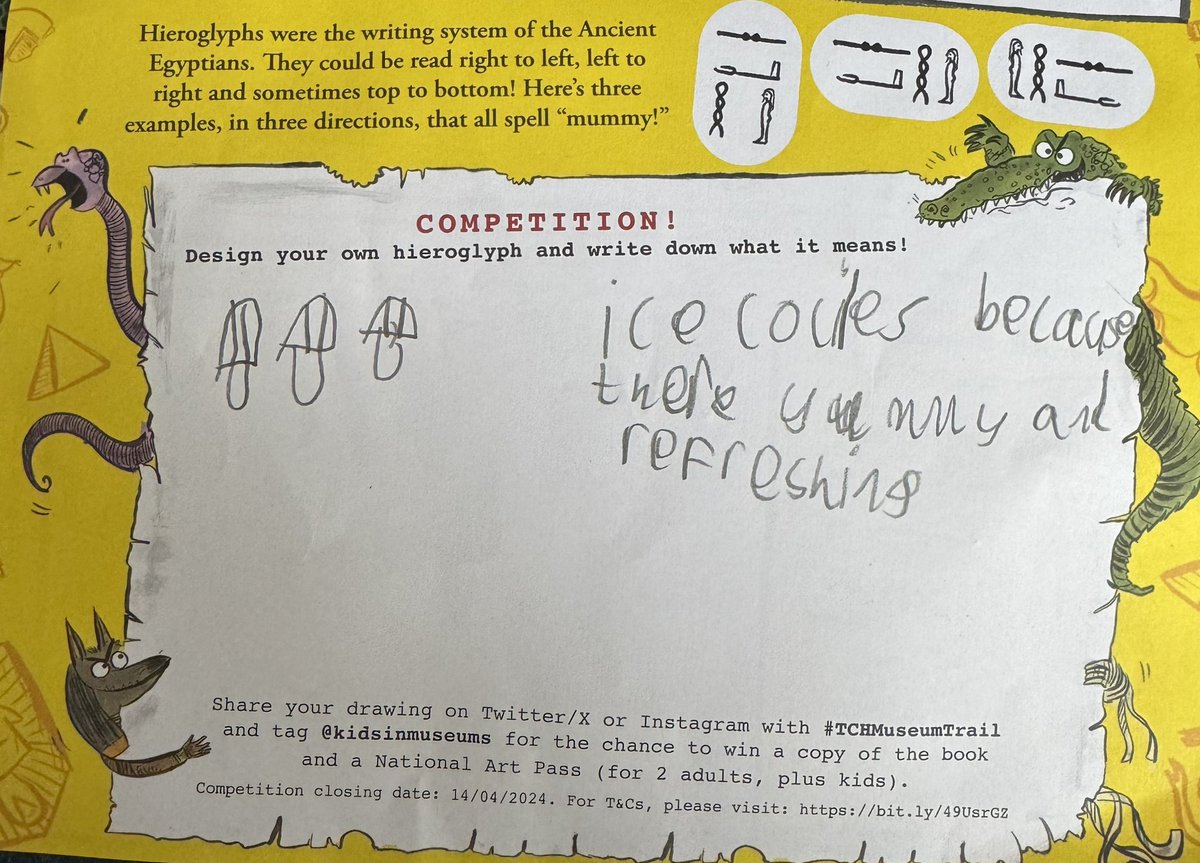 Hieroglyphs were the writing system of the Ancient
Egyptians. They could be read right to left, left to
right and sometimes top to bottom! Here's three
examples, in three directions, that all spell “mummy!”
COMPETITION!
Design your own hieroglyph and write down what it means!
ice because
there yummy and
refreshing
Share your drawing on Twitter/X or Instagram with #TCHMuseumTrail
and tag @kidsinmuseums for the chance to win a copy of the book
and a National Art Pass (for 2 adults, plus kids).
Competition closing date: 14/04/2024. For T&Cs, please visit: https://bit.ly/49UsrGZ